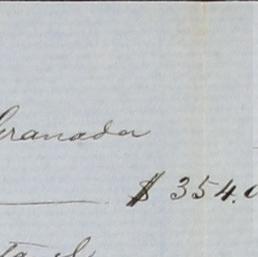 Granada
$ 354.0